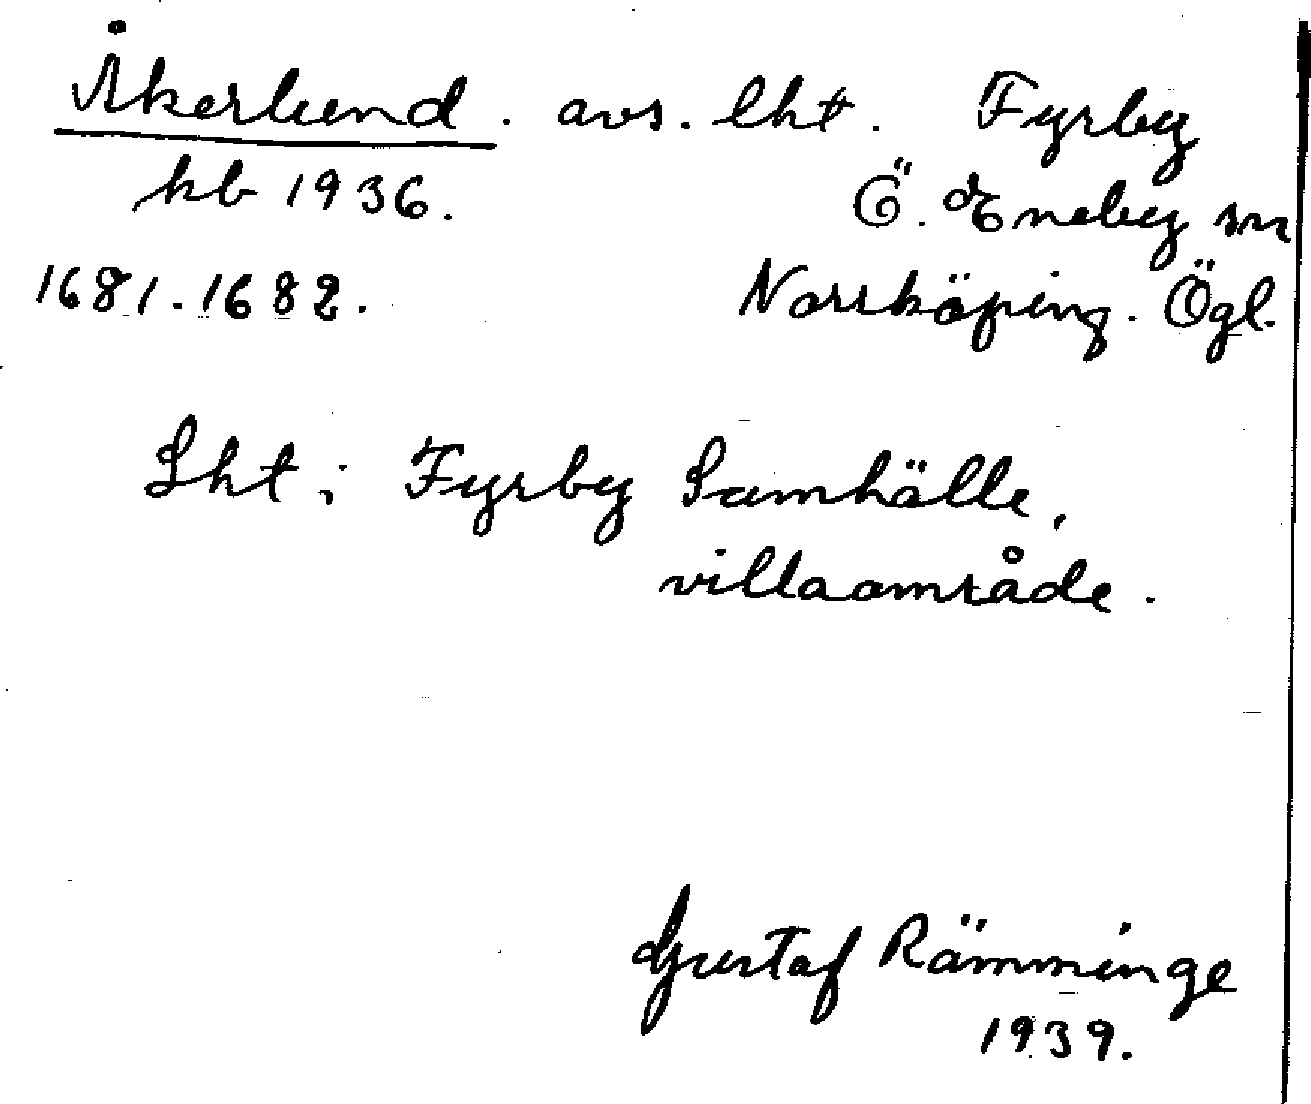 Åkerlund. avs. lht. Fyrby
kb 1936. Ö. Eneby sn
1681-1682. Norrköping. Ögl.
Lht; Fyrby Samhälle,
villaområde.
Gustaf Rämminge
1939.